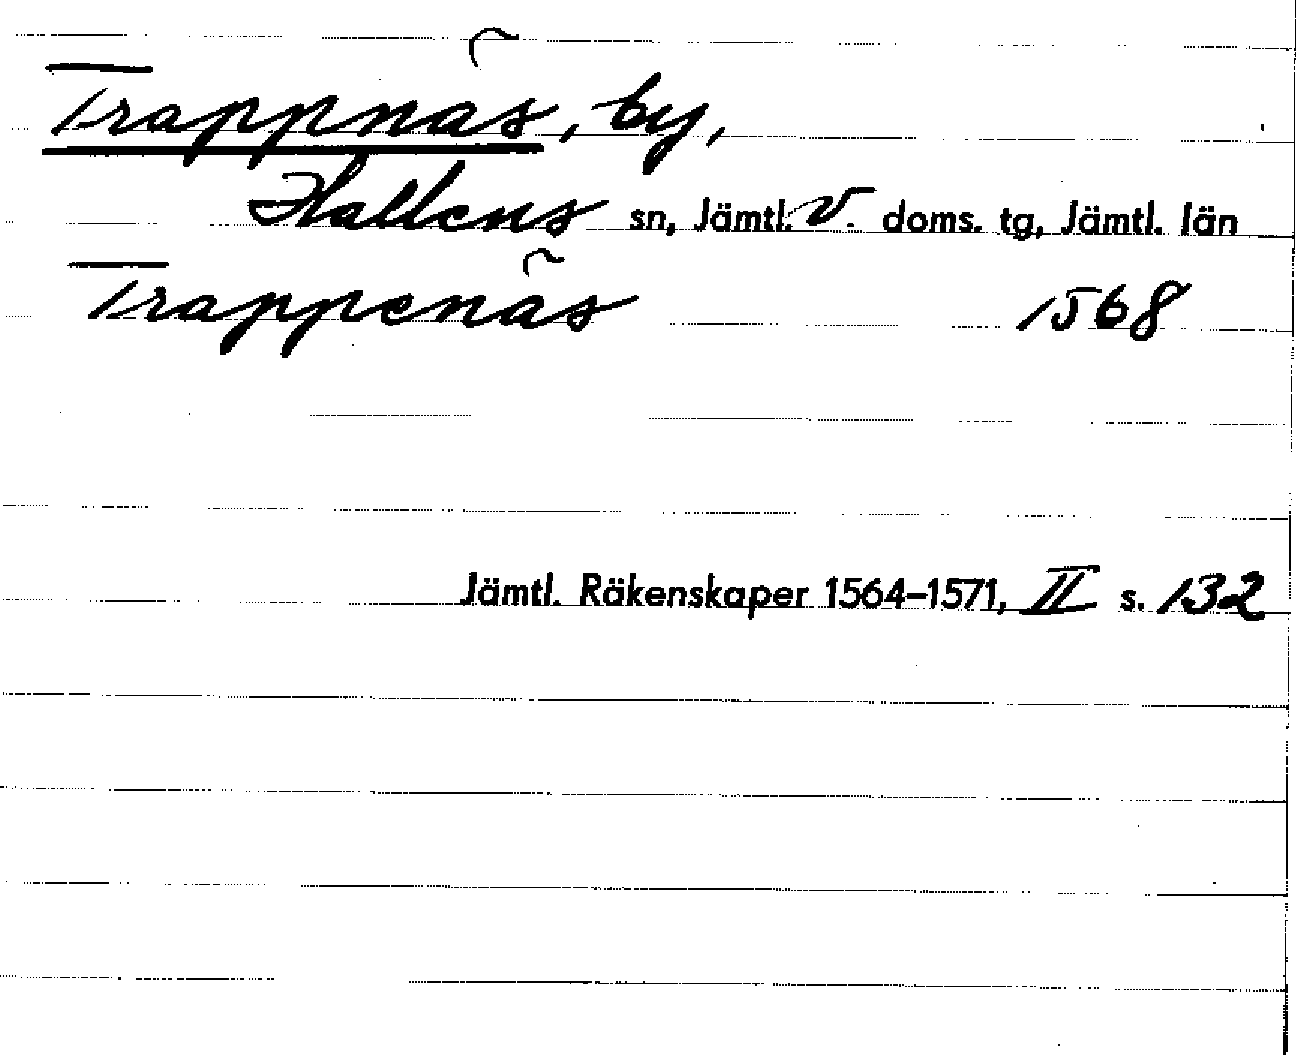 Trappnäs, by,
Hallens sn, Jämtl. V. doms. tg, Jämtl. län
Trappenäs 1568
Jämtl. Räkenskaper 1564–1571, II s. 132